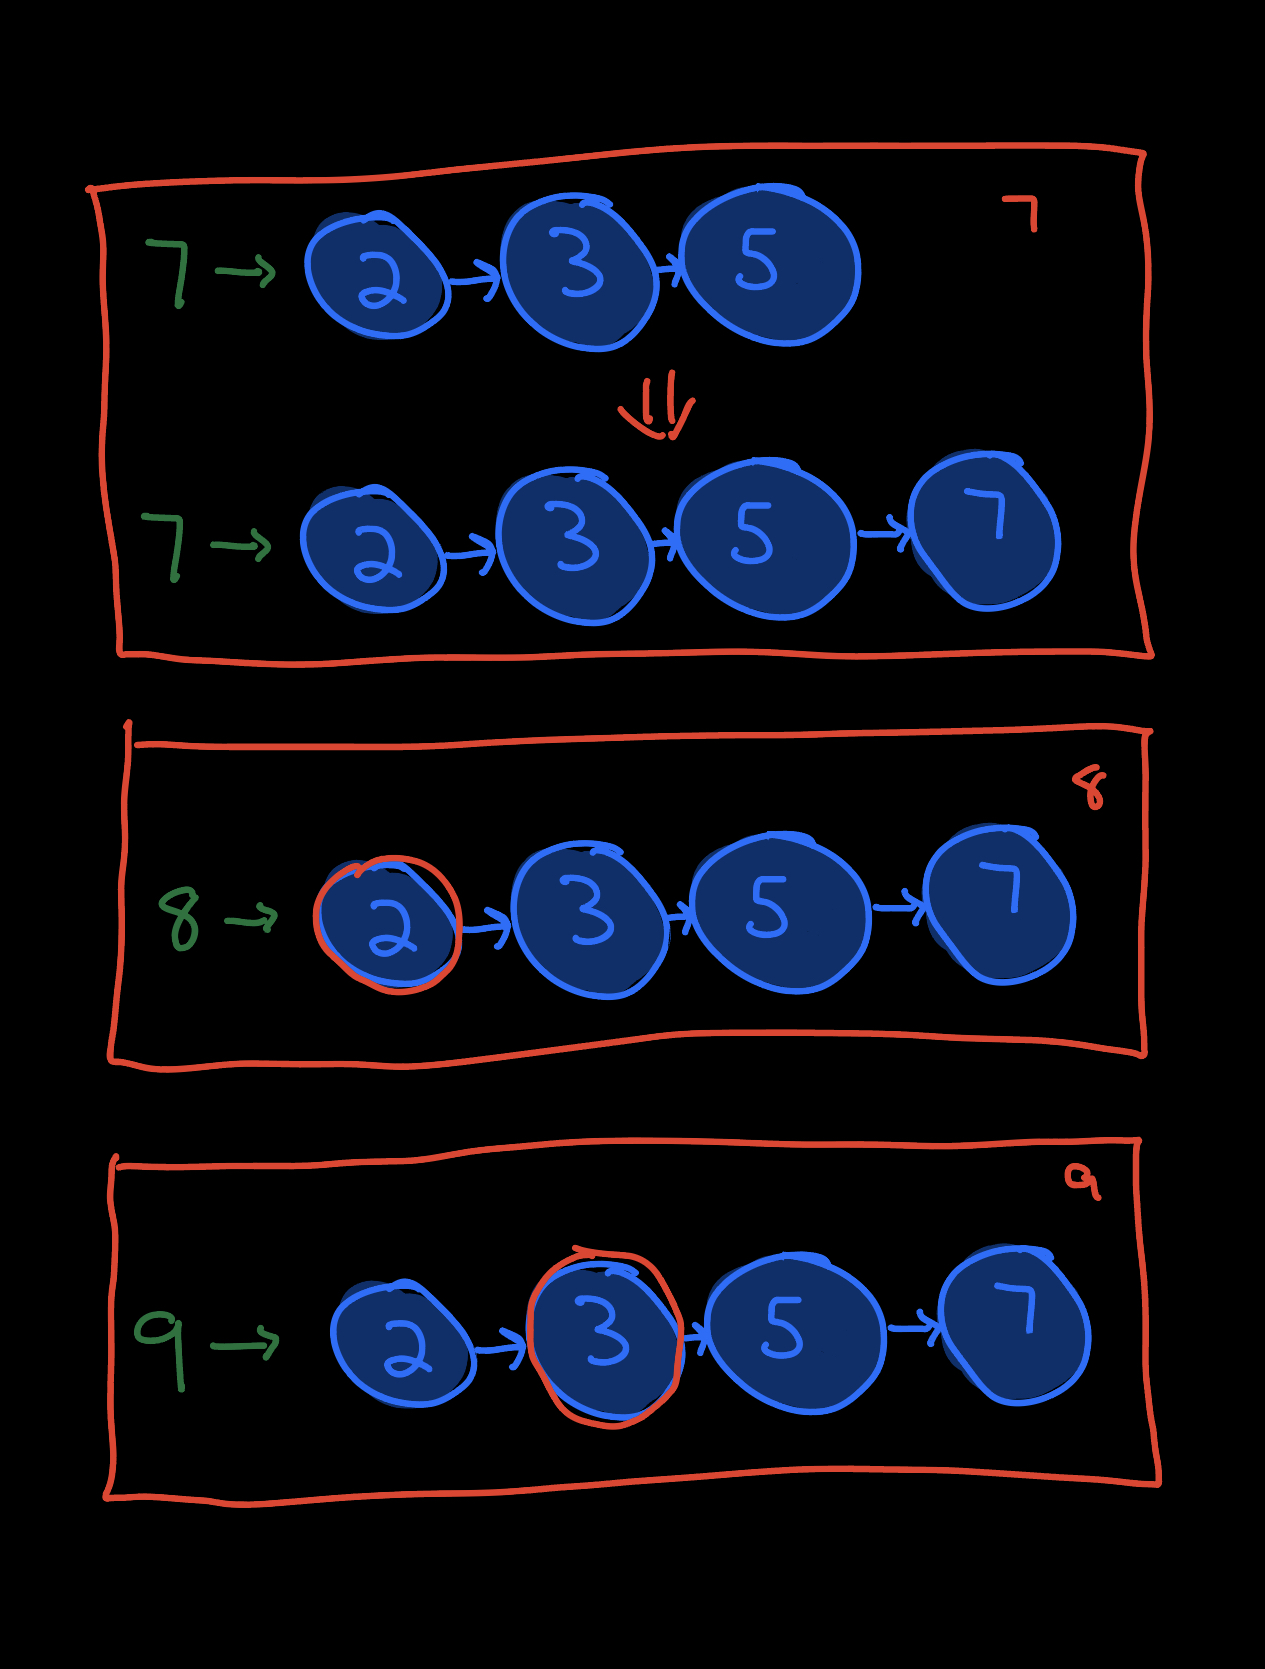 7
7 → 2 → 3 → 5
⇓
7 → 2 → 3 → 5 → 7
8
8 → 2 → 3 → 5 → 7
9
9 → 2 → 3 → 5 → 7